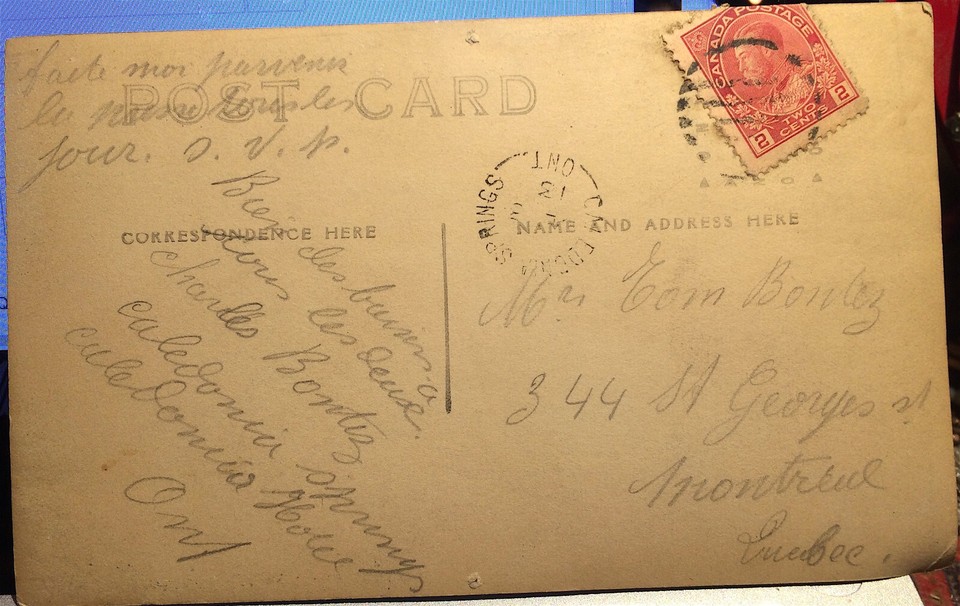 faite moi parvenir
la
jour. S. V. P.
POST CARD
CANADA POSTAGE
2 TWO CENTS 2
CORRESPONDENCE HERE
NAME AND ADDRESS HERE
CALEDONIA SPRINGS
ONT
13
Bien des
les deux.
Charles Bontez
Caledonia Springs
Caledonia
Ont
Mrs Tom Bontez
344 St Georges st
Montreal
Quebec.